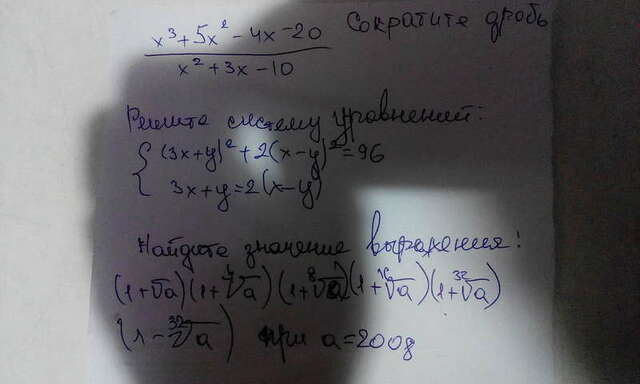 x³+5x²-4x-20 Сократите дробь
x²+3x-10
Решите систему уравнений:
(3x+y)²+2(x-y)²=96
3x+y=2(x-y)
Найдите значение выражения:
(1+√a)(1+⁴√a)(1+⁸√a)(1+¹⁶√a)(1+³²√a)
(1-³²√a) при a=2008